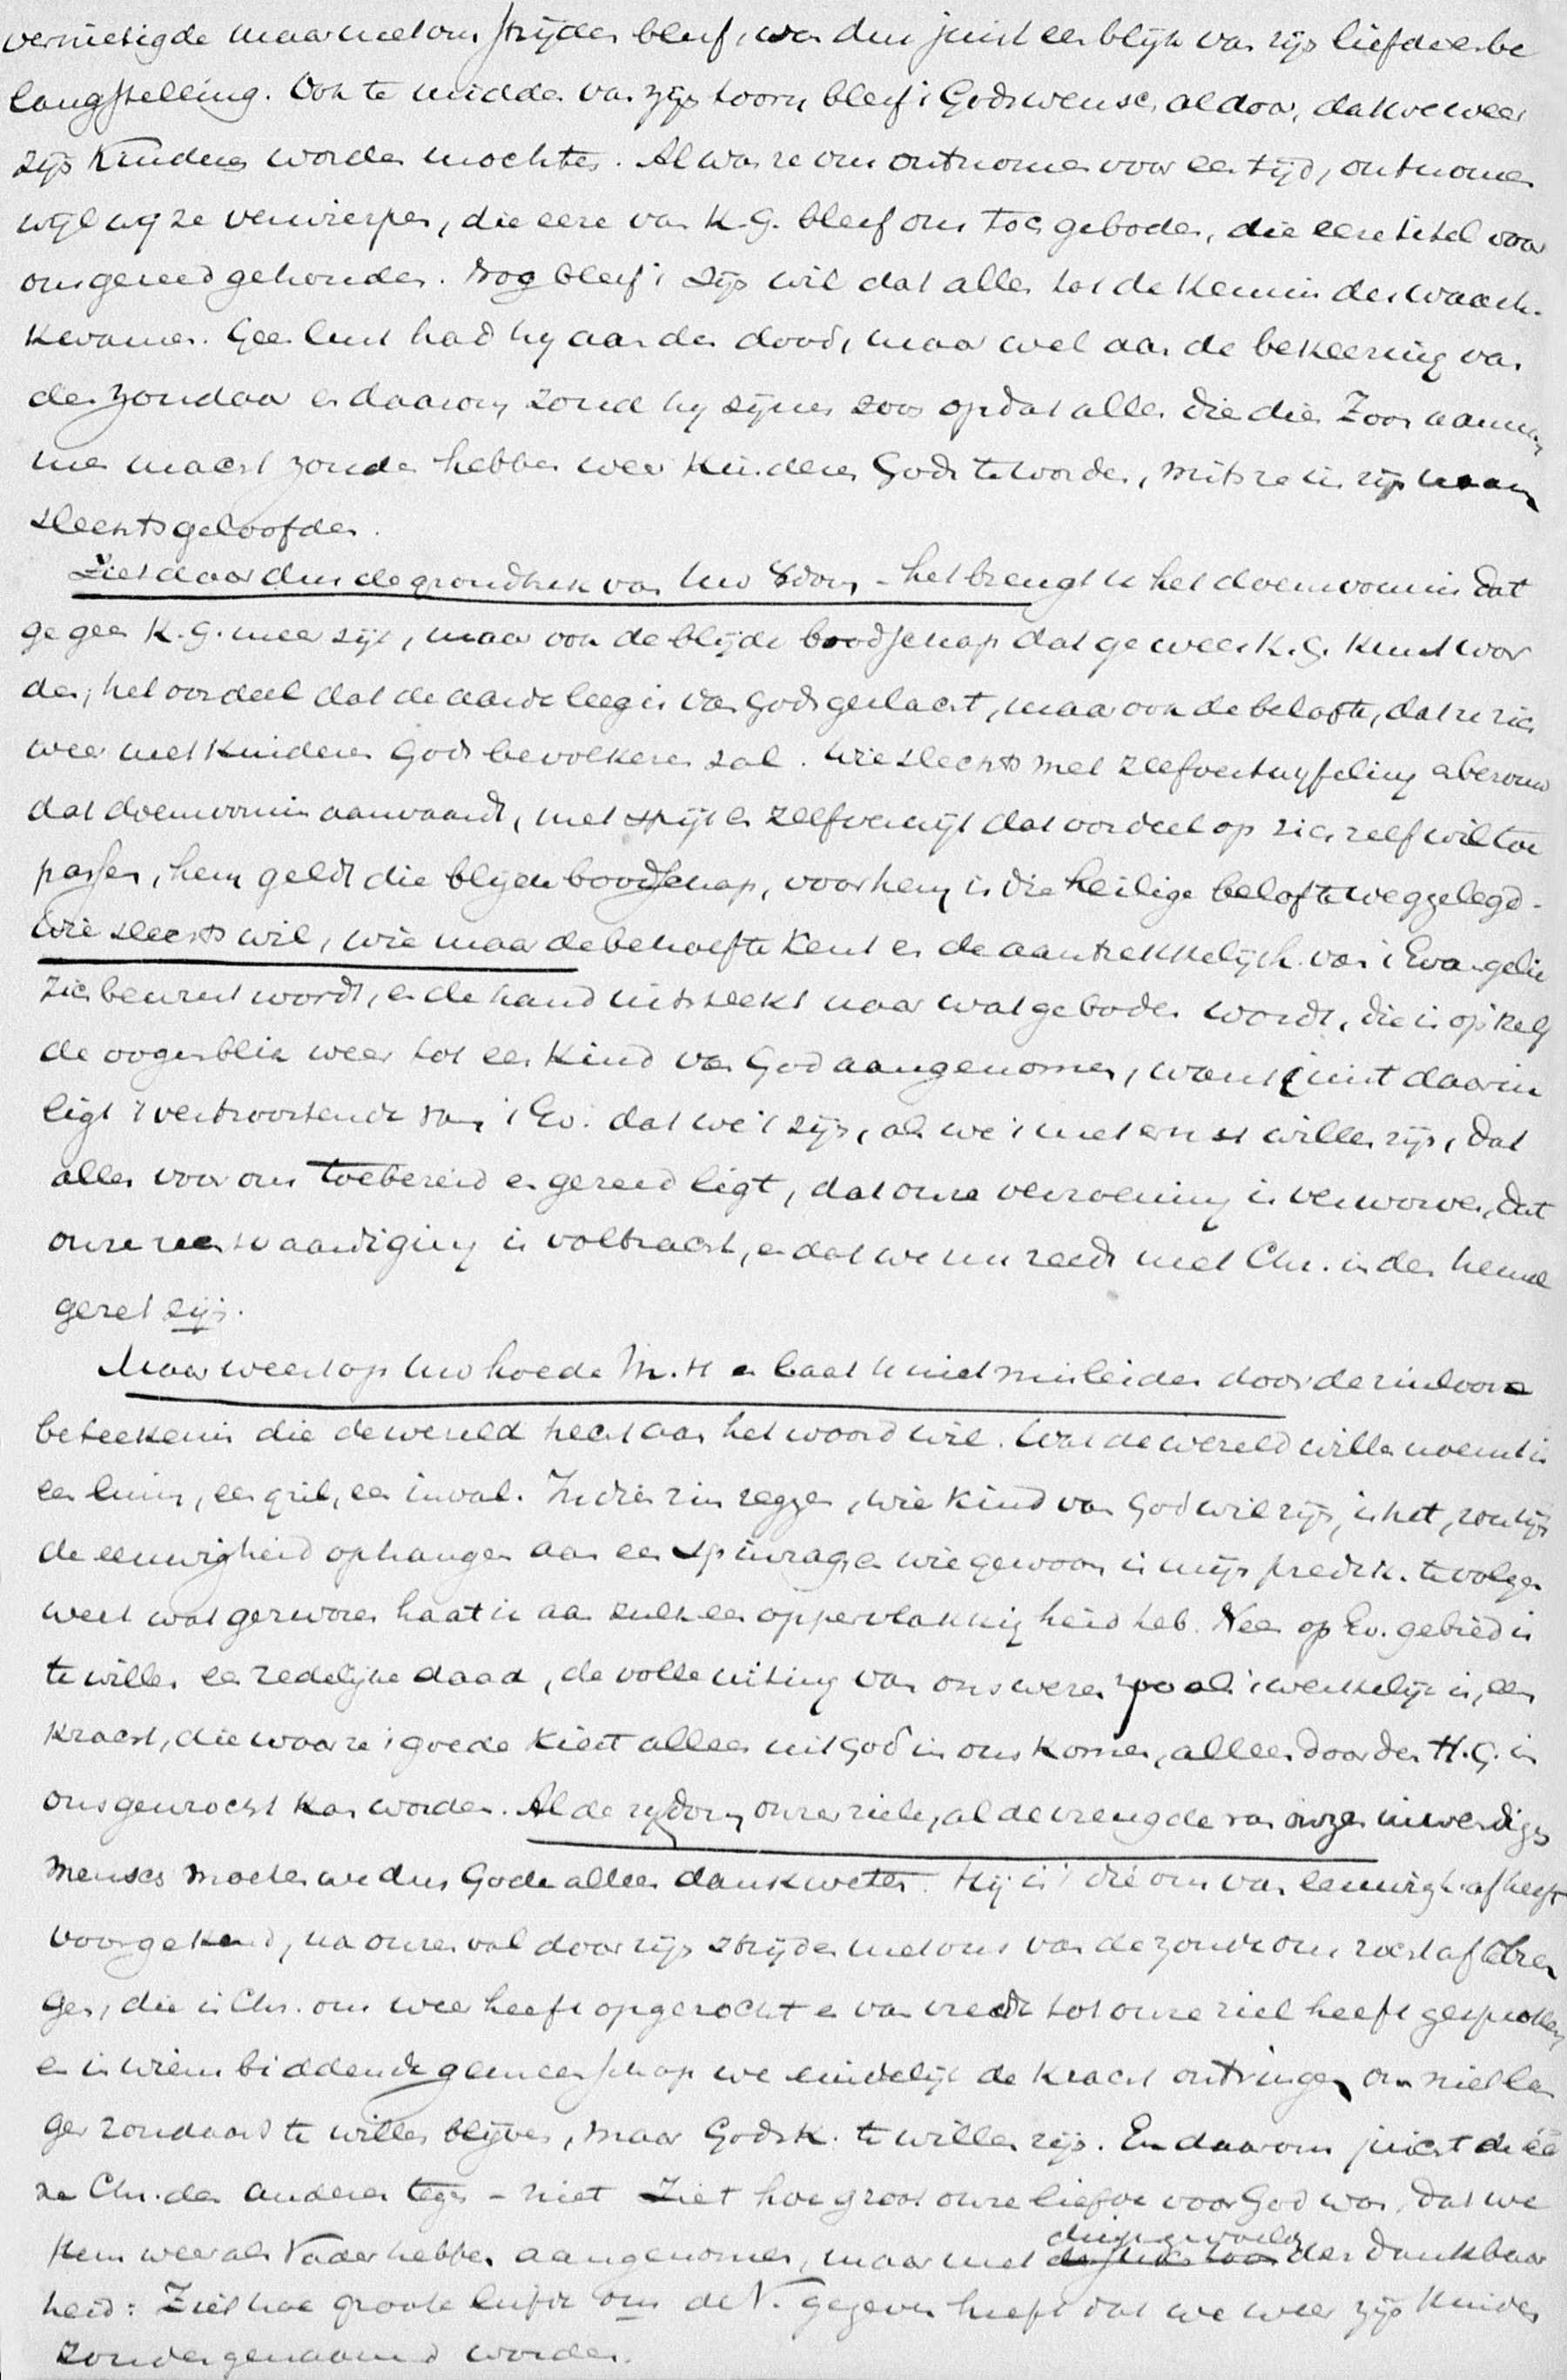 vernietigde maar met ons strijden bleef, was dus juist een blijk van zijn liefde en be
langstelling. Ook te midden van zijn toorn bleef 't Gods wensch aldoor, dat we weer
zijn kinderen worden mochten. Al was ze ons ontnomen voor een tijd, ontnomen
wijl wij ze verwierpen, die eere van K.G. bleef ons toch geboden, die eeretitel voor
ons gereed gehouden. Nog bleef 't zijn wil dat allen tot de kennis der waarh.
kwamen. Geen lust had hij aan den dood, maar wel aan de bekeering van
den zondaar en daarom zond hij zijnen zoon opdat allen die dien Zoon aanna
men macht zouden hebben weer kinderen Gods te worden, mits ze in zijn naam
slechts geloofden.
Ziet daar dus de grondtrek van - het brengt u het doemvonnis dat
ge geen K.G. meer zijt, maar ook de blijde boodschap dat ge weer K.G. kunt wor
den; het oordeel dat de aarde leeg is van Gods geslacht, maar ook de belofte, dat ze zich
weer met kinderen Gods bevolkeren zal. Wie slechts met zelfvertwijfeling en berouw
dat doemvonnis aanvaardt, met spijt en zelfverwijt dat oordeel op zich zelf wil toe
passen, hem geldt die blijde boodschap, voor hem is die heilige belofte weggelegd.
Wie slechts wil, wie maar de behoefte kent en de aantrekkelijkh. van 't Evangelie
zich bewust wordt, en de hand uitsteekt naar wat geboden wordt, die is op 't zelf
de oogenblik weer tot een kind van God aangenomen, want juist daarin
ligt 't vertroostende van 't Ev. dat we 't zijn, als we 't met ernst willen zijn, dat
alles voor ons toebereid en gereed ligt, dat onze verzoening is verworven, dat
onze rechtvaardiging is volbracht, en dat we nu reeds met Chr. in den hemel
gezet zijn.
Maar weest op Uw hoede M.H. en laat U niet misleiden door de zinloose
beteekenis die de wereld hecht aan het woord wil. Wat de wereld willen noemt is
een luim, een gril, een inval. In dien zin zeggen, wie kind van God wil zijn, is het, zou zijn
de eeuwigheid ophangen aan een spinrag, en wie gewoon is mijn predik. te volgen
weet wat gezworen haat ik aan zulk een oppervlakkigheid heb. Neen op Ev. gebied is
te willen een redelijke daad, de volle uiting van ons wezen zooals 't werkelijk is, een
kracht, die waar ze 't goede kiest alleen uit God in ons komen, alleen door den H.G. in
ons gewrocht kan worden. Al de rijkdom onzer ziele, al de vreugde van onzen inwendigen
mensch moeten we dus Gode alleen dank weten. Hij is 't die ons van eeuwigh. af heeft
voorgekend, na onzen val door zijn strijden met ons van de zonde ons zocht af te bren
gen, die in Chr. ons weer heeft opgezocht en van vrede tot onze ziel heeft gesproken
en in wiens biddende gemeenschap we eindelijk de kracht ontvingen om niet lan
ger zondaars te willen blijven, maar Gods K. te willen zijn. En daarom juicht de ee
ne Chr. den anderen tegen - niet Ziet hoe groot onze liefde voor God was, dat we
Hem weer als Vader hebben aangenomen, maar met diep gevoelde der dankbaar
heid: Ziet hoe groote liefde ons de V. gegeven heeft dat we weer zijn kinderen
zouden genaamd worden.